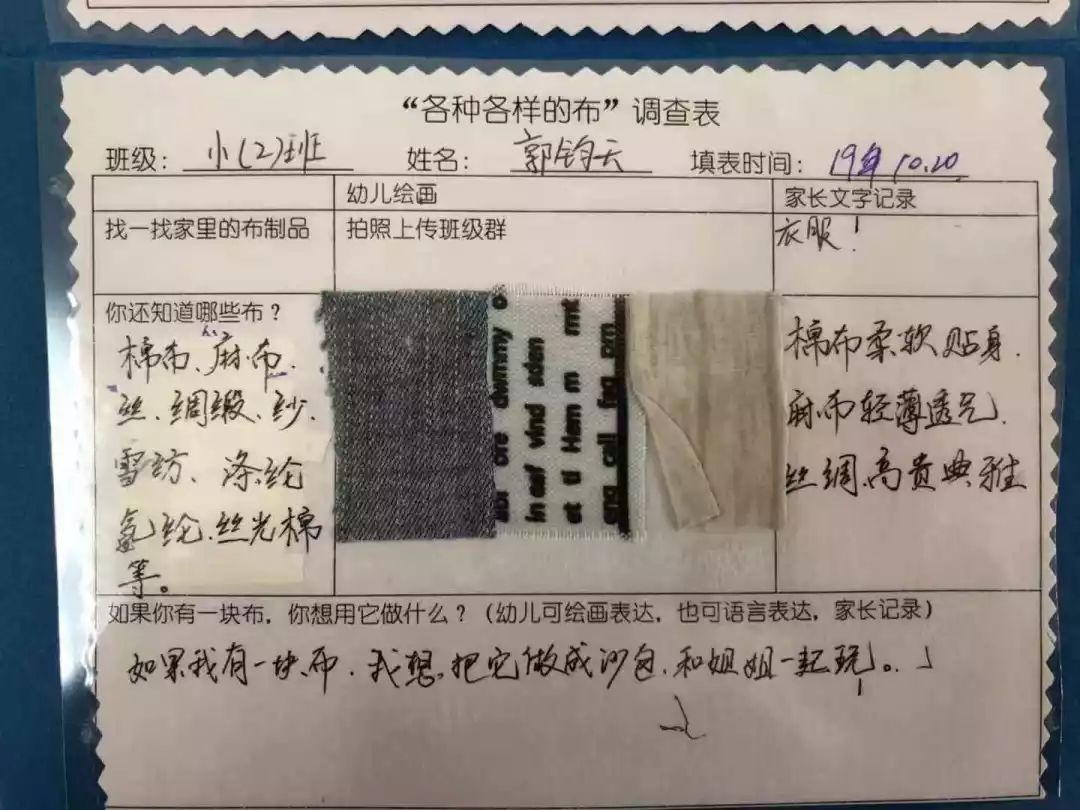 “各种各样的布”调查表
班级：小(2)班 姓名：郭钧天 填表时间：19年10.20
幼儿绘画 家长文字记录
找一找家里的布制品 拍照上传班级群 衣服！
你还知道哪些布？
棉布、麻布、
丝、绸缎、纱、
雪纺、涤纶
氨纶、丝光棉
等。
棉布柔软贴身.
麻布轻薄透气.
丝绸、高贵典雅
如果你有一块布，你想用它做什么？（幼儿可绘画表达，也可语言表达，家长记录）
如果我有一块布，我想把它做成沙包，和姐姐一起玩。